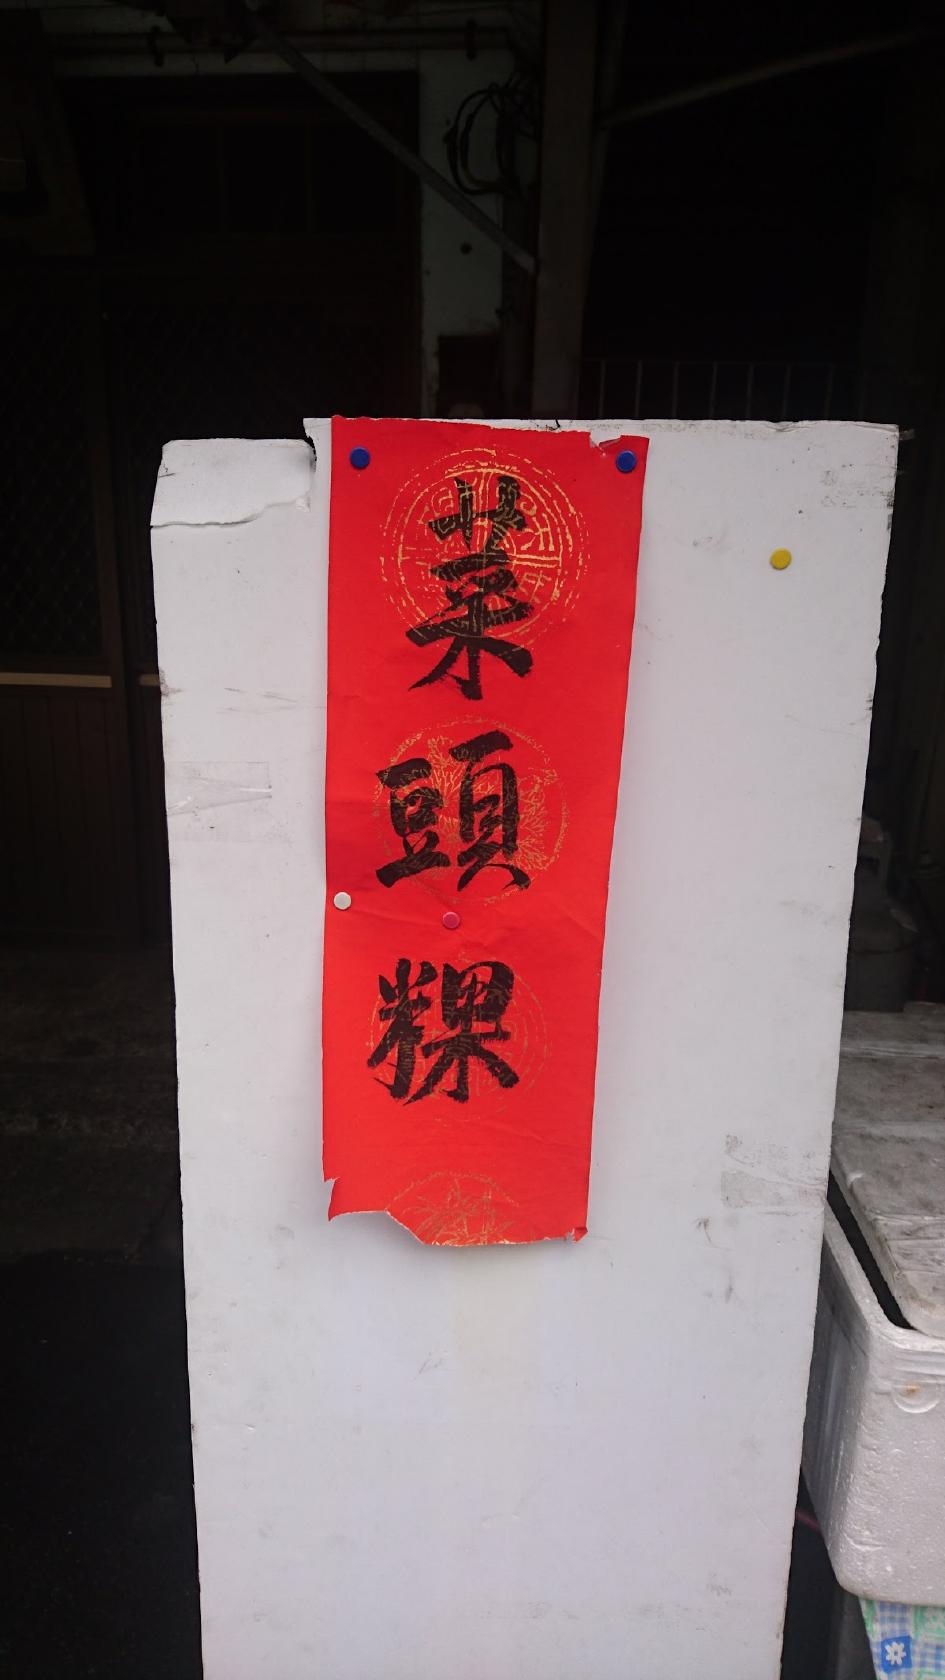 菜頭粿